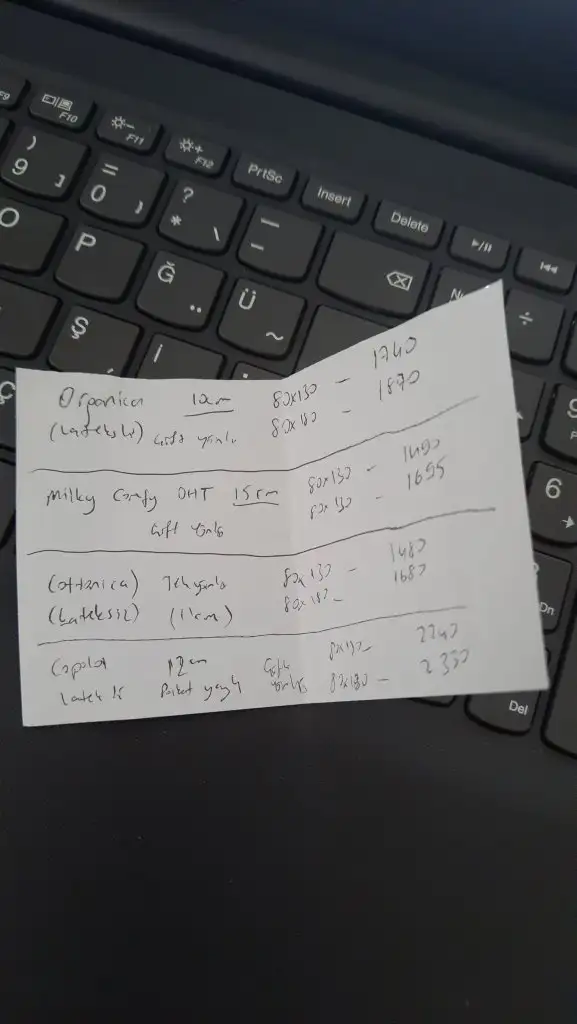 F9
F10
F11
F12
PrtSc
Insert
Delete
)
9
=
0
?
*
\
_
-
O
P
Ğ
¨
Ü
~
Ş
İ
Ç
÷
6
Del
Organica 10cm 80x130 - 1740
(Lateksli) çift yönlü 80x180 - 1870
Milky Comfy DHT 15cm 80x130 - 1490
Çift yönlü 80x190 - 1695
(Cottonica) Tek yönlü 80x130 - 1480
(Lateksiz) (11cm) 80x180 - 1680
12cm Çift 2240
Lateksli Paket yaylı yönlü 80x180 - 2330